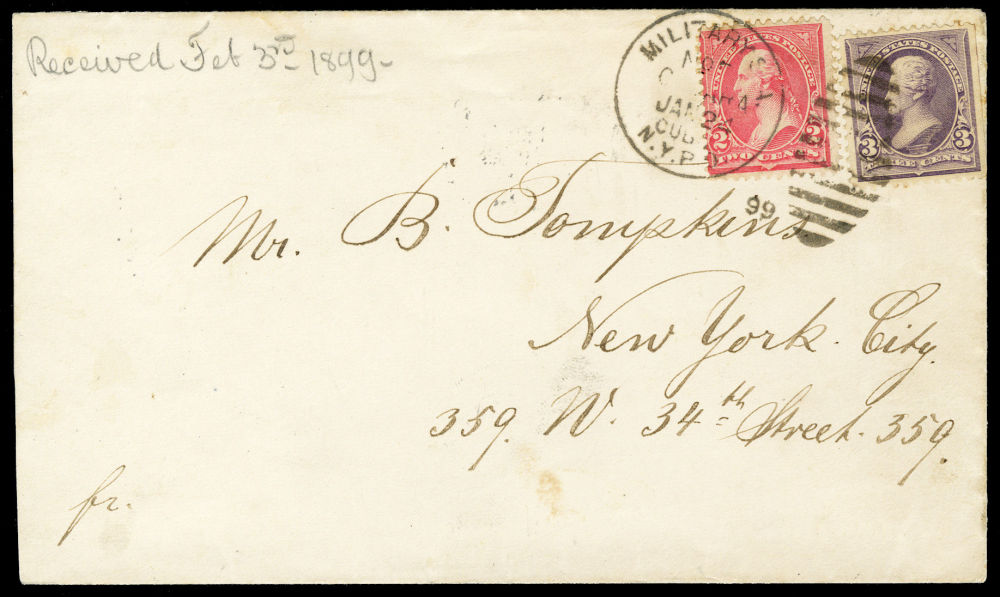 Received Feb 3rd 1899-
MILITARY STA.
JAN 24
CUBA
N.Y.P.O.
99
UNITED STATES POSTAGE
2 2
TWO CENTS
UNITED STATES POSTAGE
3 3
THREE CENTS
Mr. B. Tompkins.
New York. City.
359. W. 34th Street. 359.
fr.